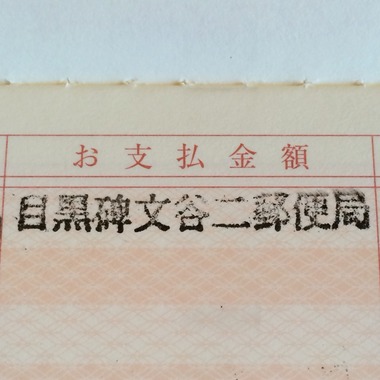 お支払金額
目黒碑文谷二郵便局